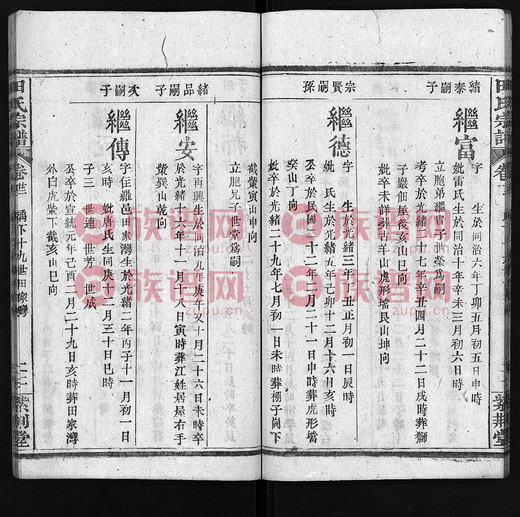 田氏宗譜
緒泰嗣子
繼富
字 生於同治六年丁卯五月初五日申時
妣雷氏生於同治十年辛未三月初六日時
考卒於光緒十七年辛丑四月二十二日戌時葬獅
子巖個屋後亥山巳向
妣卒未詳葬 山羊山虎形壋艮山坤向
立胞弟繼官子世榮爲嗣
宗賢嗣孫
繼德
字 生於光緒三年 丑正月初一日辰時
妣 氏生於光緒五年己卯十二月初一日亥時
公卒於民國 十二年二月二十一日申時葬虎形壋
癸山丁向
妣卒於光緒二十九年七月初一日未時葬棚子崗下
截葉寅山申向
立胞兄子世 爲嗣
緒品嗣子
繼安
字再興生於同治九年庚午又十月二十六日未時卒
於光緒 六年十二月十八日寅時葬江姓居屋右手
葉巽山乾向
次嗣子
繼傳
字任維邑田家灣生於光緒二年丙子十一月初一日
亥時 妣席氏生同庚十二月三十日巳時
子三 世連 世芳 世成
公卒於宣統元年己酉二月二十九日亥時葬田家灣
外白虎葉下截亥山巳向
田氏宗譜
卷
稱下十九世田家灣
二十
紫荊堂